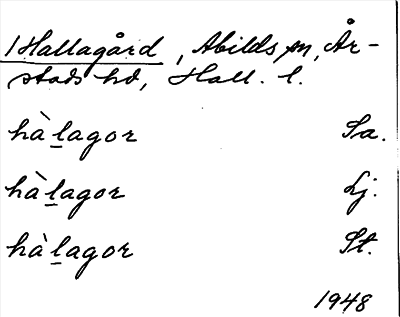 1 Hallagård, Abilds sn, År-
stads hd, Hall. l.
hàl̲agor Sa.
hàl̲agor Lj.
hàl̲agor St.
1948